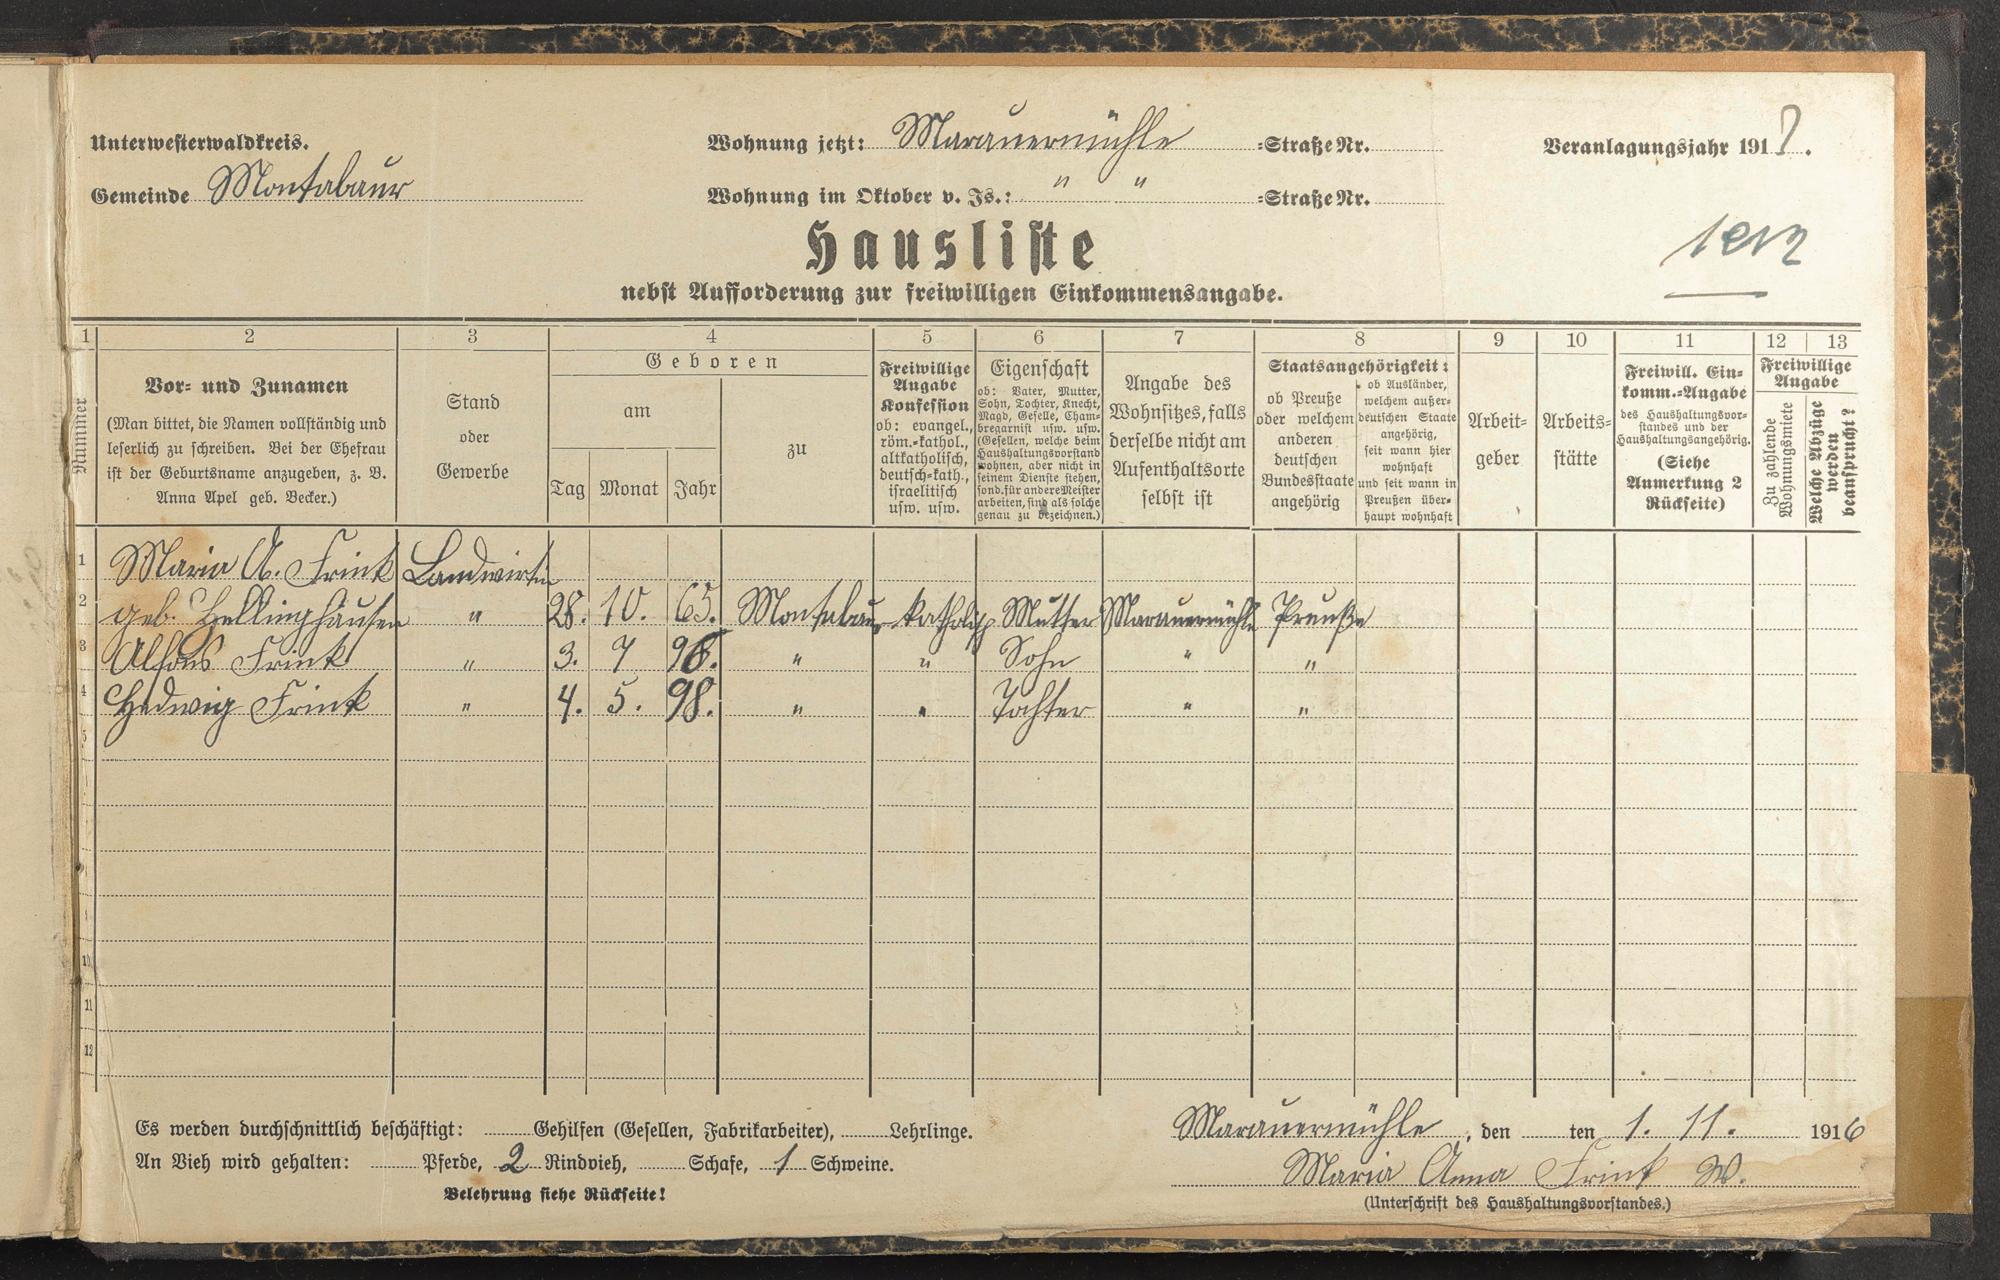 Unterwesterwaldkreis.
Gemeinde Montabaur
Wohnung jetzt: Marauermühle =Straße Nr.
Wohnung im Oktober v. Js.: " " =Straße Nr.
Veranlagungsjahr 191
Hausliste
nebst Aufforderung zur freiwilligen Einkommensangabe.
1 2 3 4 5 6 7 8 9 10 11 12 13
Nummer
Vor- und Zunamen
(Man bittet, die Namen vollständig und
leserlich zu schreiben. Bei der Ehefrau
ist der Geburtsname anzugeben, z. B.
Anna Apel geb. Becker.)
Stand
oder
Gewerbe
Geboren
am
Tag Monat Jahr
zu
Freiwillige
Angabe
Konfession
ob: evangel.,
röm.-kathol.,
altkatholisch,
deutsch-kath.,
israelitisch
usw. usw.
Eigenschaft
ob: Vater, Mutter,
Sohn, Tochter, Knecht,
Magd, Geselle, Cham-
bregarnist usw. usw.
(Gesellen, welche beim
Haushaltungsvorstand
wohnen, aber nicht in
seinem Dienste stehen,
sond. für andere Meister
arbeiten, sind als solche
genau zu bezeichnen.)
Angabe des
Wohnsitzes, falls
derselbe nicht am
Aufenthaltsorte
selbst ist
Staatsangehörigkeit:
ob Preuße
oder welchem
anderen
deutschen
Bundesstaate
angehörig
ob Ausländer,
welchem außer-
deutschen Staate
angehörig,
seit wann hier
wohnhaft
und seit wann in
Preußen über-
haupt wohnhaft
Arbeit-
geber
Arbeits-
stätte
Freiwill. Ein-
komm.-Angabe
des Haushaltungsvor-
standes und der
Haushaltungsangehörig.
(Siehe
Anmerkung 2
Rückseite)
Freiwillige
Angabe
Zu zahlende
Wohnungsmiete
Welche Abzüge
werden
beansprucht?
1 Maria A. Frink Landwirtin
2 geb. Hellinghausen " 28. 10. 65. Montabaur katholisch Mutter Marauermühle Preuße
3 Alfons Frink " 3. 7 96. " " Sohn " "
4 Hedwig Frink " 4. 5. 98. " " Tochter " "
5
10
11
12
Es werden durchschnittlich beschäftigt: Gehilfen (Gesellen, Fabrikarbeiter), Lehrlinge.
An Vieh wird gehalten: Pferde, 2 Rindvieh, Schafe, 1 Schweine.
Belehrung siehe Rückseite!
Marauermühle, den ten 1. 11. 1916
Maria Anna Frink W.
(Unterschrift des Haushaltungsvorstandes.)